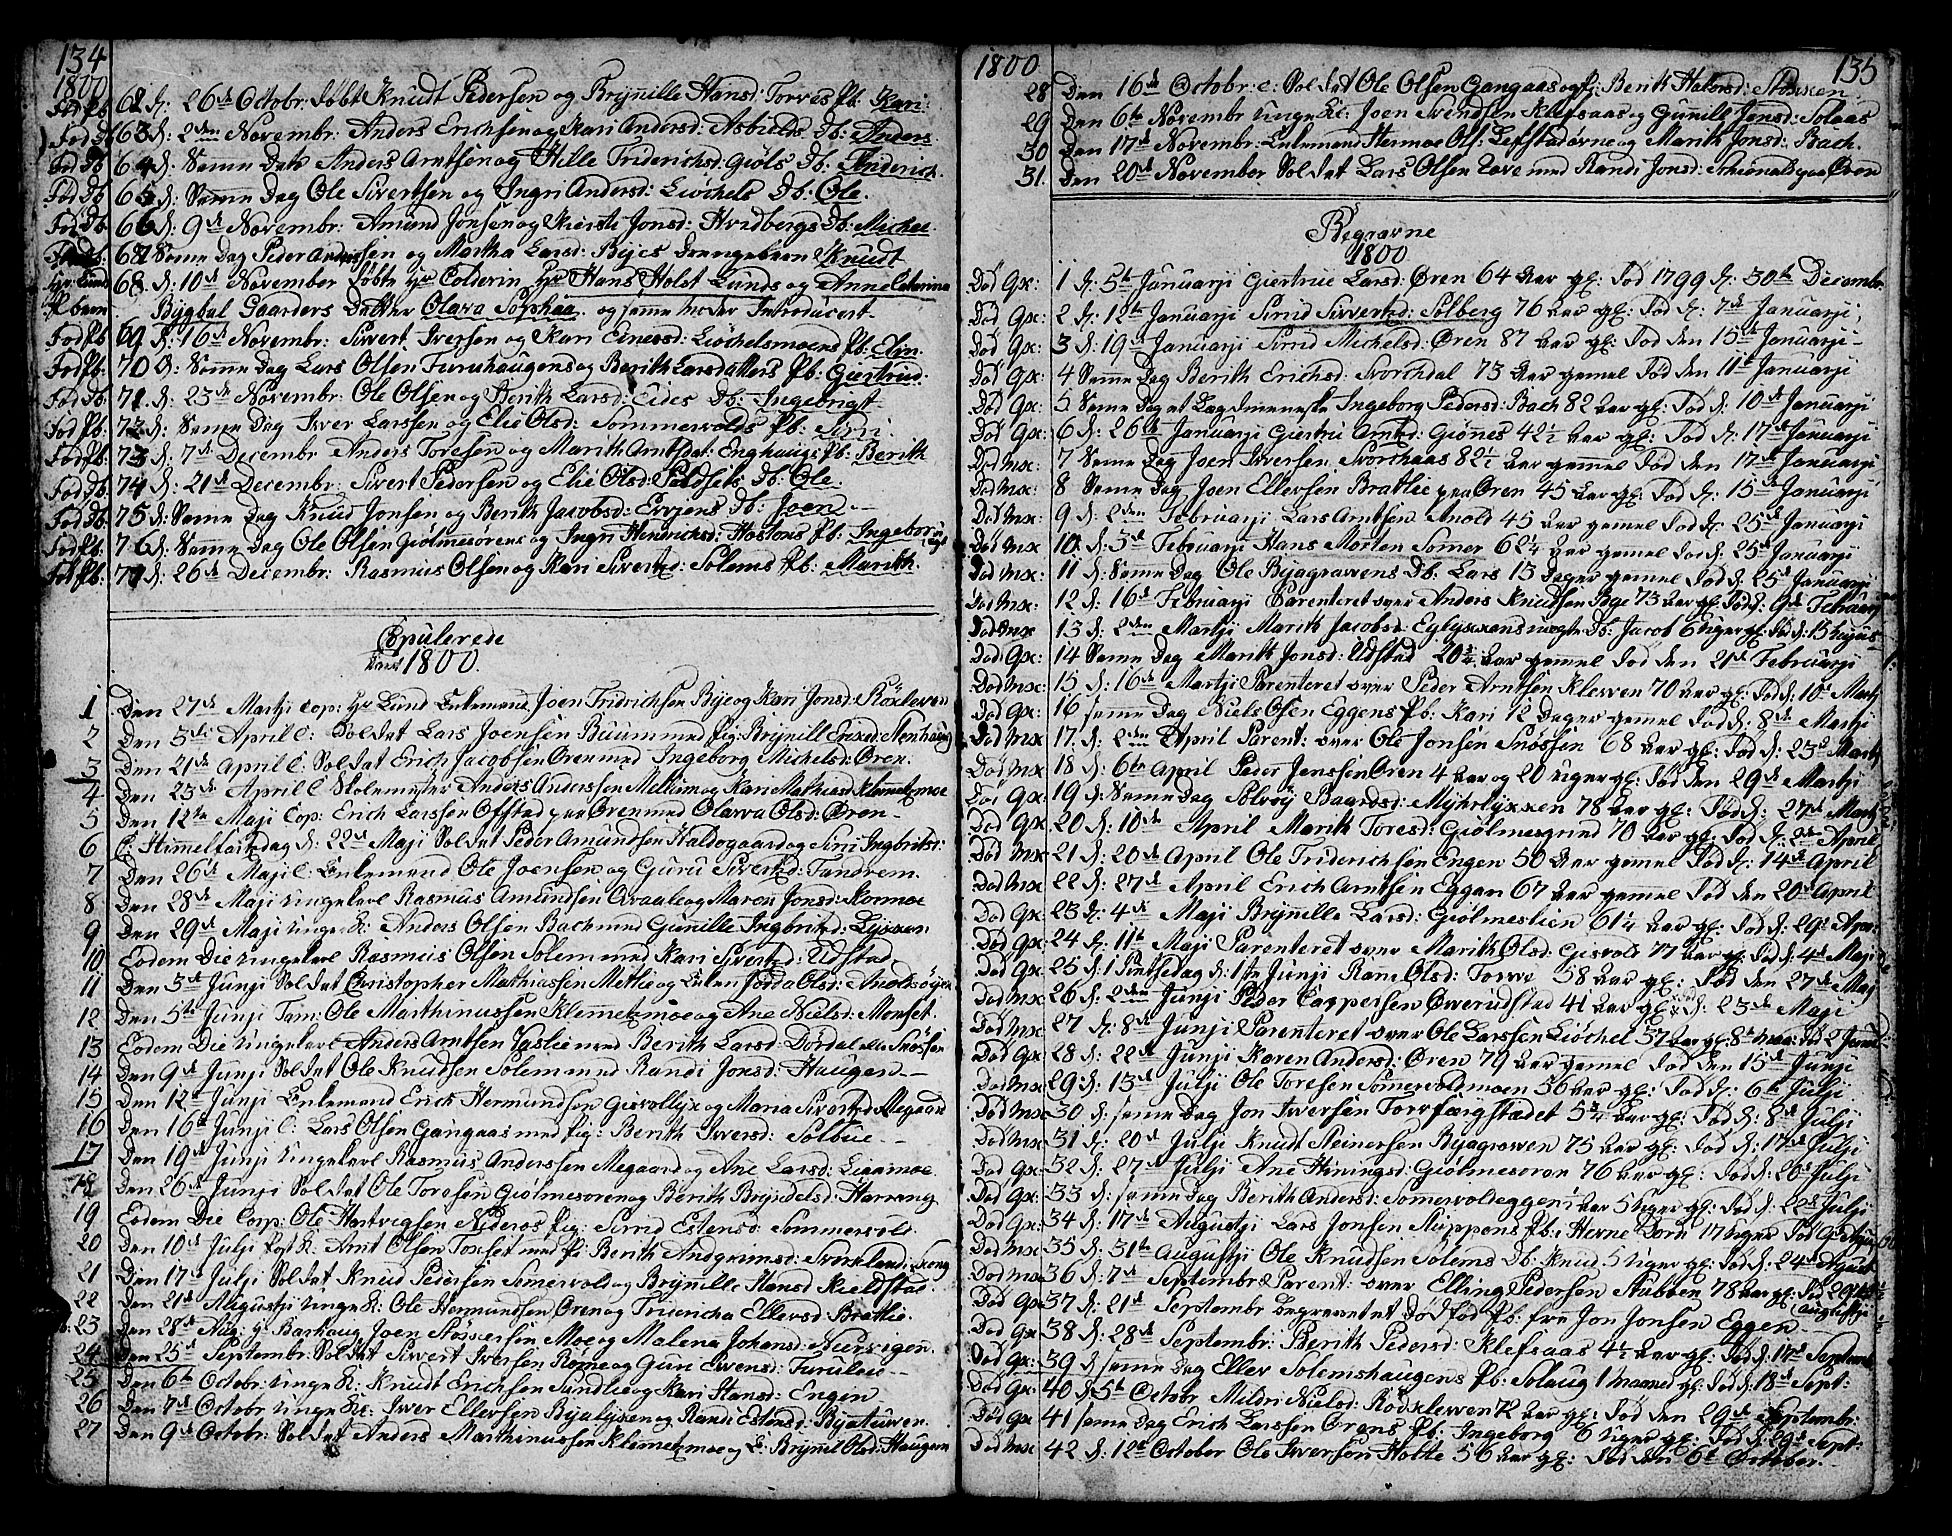 134
1800
Fød Pb. 62 d: 26de Octobr: døbt Knudt Pedersen og Brynille Hansd: Torves Pb: Kari.
Fød Db 63 d: 2den Novembr: Anders Erichsen og Kari Andersd: Asbiels Db: Anders
Fød Db 64 d: Samme Dato Anders Arntsen og Hille Friderichsd: Giøls Db: Friderich.
Fød Db 65 d: Samme Dag Ole Sivertsen og Ingri Andersd: Liøchels Db: Ole.
Fød Db. 66 d: 9de Novembr: Amund Jonsen og Kiersti Jonsd: Hvidbergs Db: Michel
67 Samme Dag Peder Andersen og Martha Larsd: Byes Drengebarn Knudt
Hr: Lunds 68 d: 10de November døbte Hr Colderin Hr Hans Holst Lunds og Anne Catarina
Pbarn Bygbal Gaarders Datter Olava Sophia. og samme Moder Introducert.
Fød Pb 69 d: 16de Novembr: Sivert Iversen og Kari Einersd: Liøchelsmoens Pb: Elin.
Fød Pb. 70 d: Samme Dag Lars Olsen Furuhaugens og Berith Larsdatters Pb: Giertrud.
Fød Db: 71. d: 23de Novembr: Ole Olsen og Berith Larsd: Eides Db: Ingebrigt
Fød Pb: 72 d: Samme Dag Iver Larssen og Elie Olsd: Sommervolds Pb: Siri.
Fød Pb: 73 d: 7de Decembr Anders Toresen og Marith Arntsdat: Enghaugs Pb: Berith
Fød Db 74 d: 21de Decembr: Sivert Pedersen og Elie Olsd: Solsets Db: Ole.
Fød Db: 75 d: Samme Dag Knud Jonsen og Berith Jacobsd: Evjens Db: Joen
Fød Pb. 76 d: Samme Dag Ole Olsen Giølmesørens og Ingri Henrichsd: Hostons Pb: Ingeborg
Fød Pb: 77 d: 26de Decembr: Rasmus Olsen og Kari Sivertsd: Solems Pb: Marith.
Copulerede
1800.
1 Den 27de Martji Cop: Hr Lund Enkemand Joen Fridrichsen Bye og Kari Jonsd:
2 Den 3de April C: Soldat Lars Joensen Buum med Pig: Brynill
3 Den 21de April C: Soldat Erich Jacobsen Øren med Ingeborg Michelsd: Øren.
4 Den 23de April C Skolemester Anders Andersen Melhim og Kari Mathiasd Klemetzmoe
5 Den 12te Maji Cop: Erich Larssen Ofstad paa Øren med Olava Olsd: Øren
6 C: Himmelfartsdag d: 22de Maji Soldat Peder Amundsen Haldogaard og Siri Ingbritsd:
7 Den 26de Maji C: Enkemand Ole Joensen og Guru Sivertsd: Fandrem.
8 Den 28de Maji ungekarl Rasmus Amundsen Qvaale og Maren Jonsd: Kormoe
9 Den 29de Maji ungek: Anders Olsen Bach med Gunille Ingbritsd: Lyxxen
10 Eodem Die ungekarl Rasmus Olsen Solem med Kari Sivertsd: Udstad
11 Den 3de Junji Soldat Christopher Mathiassen Metlie og Enken Jødda Olsd:
12 Den 5te Junji Tam: Ole Marthinussen Klemetzmoe og Ane Nielsd: Monset.
13 Eodem Die ungekarl Anders Arntsen Vaslie med Berith Larsd: Dørdal
14 Den 9de Junji Soldat Ole Knudsen Solem med Randi Jonsd: Haugen
15 Den 12te Junji Enkemand Erich Hermundsen Gisvollys og Maria Sivertsd Megaard
16 Den 16de Junji C: Lars Olsen Gangaas med Pig: Berith Iversd: Solbue
17 Den 19de Junji ungekarl Rasmus Anderssen Megaard og Ane Larsd: Lienmoe
18 Den 26de Junji Soldat Ole Toresen Giølmesøren og Berith Bryndelsd: Harvang
19 Eodem Die Corp: Ole Hartvigsen Nideros Pig: Sirid Estensd: Sommervold.
20 Den 10de Julji Post K: Arnt Olsen Tonset med Pi: Berith Andgrimsd:
21 Den 17de Julji Soldat Knud Pedersen Somervold og Brynille Hansd Kieldstad.
22 Den 21de Augustji ungek: Ole Hermundsen Øren og Fridricha Ellevsd: Bratlie.
23 Den 28de Aug: Joen Støssersen Moe og Malena Johansd: Nuivigen
24 Den 25de Septembr: Soldat Sivert Iversen Rømme og Guri Evensd: Furulie
25 Den 6te Octobr: ungek: Knudt Erichsen Sundlie og Kari Hansd: Engen
26 Den 7de Octobr ungek: Iver Ellevsen Byalyxen og Randi Estensd: Byatuven.
27 Den 9de Octobr: Soldat Anders Marthinussen Klemetzmoe og E: Brynil Olsd: Haugen
1800 135
28 Den 16de Octobr: C: Soldat Ole Olsen Gangaas og Pi: Berith Halvorsd: Stokken.
29 Den 6te Novembr ungek: Joen Svendsen Klefsaas og Gunild Jonsd: Solaas
30 Den 17de Novembr: Enkemand Hermoe Ols: Lefstadørne og Marith Jonsd: Bach.
31. Den 20de November Soldat Lars Olsen med Randi Jonsd: Øren
Begravne
1800
Død Qx: 1 d: 5te Januarji Giertrue Larsd: Øren 64 Aar gl: død 1799 d: 30te Decembr
Død Qx: 2 d: 12te Januarji Sirrid Sivertsd: Solberg 76 Aar gl: død d: 7de Januarji,
Død Qx: 3 d: 19de Januarji Sirrid Michelsd: Øren 87 Aar gl: død den 15de Januarji
Død Qx: 4 Samme Dag Berith Erichsd: Svorchdal 73 Aar gamel død den 11te Januarji
Død Qx: 5 Samme Dag et Lagdmenneske Ingeborg Pedersd: Bach 82 Aar gl: død d: 10de Januarji
Død Qx: 6 d: 26de Januarji Giertru Arntsd: Giønnes 42½ Aar gl: død d: 17de Januarji
Død Mx: 7 Samme Dag Joen Iversen Svorchaas 82½ Aar gamel død den 17de Januarji
Død Mx: 8 Samme Dag Joen Ellevsen Bratlie paa Øren 45 Aar gl: død d: 15de Januarji
Død Mx: 9 d: 2den Februarji Lars Arntsen Anold 45 Aar gamel død d: 25de Januarji
Død Mx 10. d: 5te Februarji Hans Morten Somer 62¼ Aar gamel død d: 25de Januarji
Død Mx 11 d: Samme Dag Ole Byagravens Db: Lars 13 Dager gamel død d: 25de Januarji
Død Mx: 12 d: 16de Februarji Parenteret over Anders Knudsen Bye 73 Aar gl: død d: 9de Februarji
Død Mx 13 d: 2den Martji Marith Jacobsd: Eylyxxens uægte Db: Jacob 6 uger gl:
Død Qx: 14 Samme Dag Marith Jonsd: Udstad 20¾ Aar gamel død den 21de Februarji
Død Mx: 15 d: 16de Martji Parenteret over Peder Arntsen Kleven 70 Aar gl: død d: 10de Martj
Død Qx: 16 samme Dag Niels Olsen Eggens Pb: Kari 12 Dager gamel død d: 8de Martji
Død Mx 17. d: 2den April Parent: over Ole Jonsen Snøssen 68 Aar gl: død d: 23de Martj
Død Mx 18 d: 6te April Peder Jenssen Øren 4 Aar og 20 uger gl: død den 29de Martji
Død Qx: 19 d: Samme Dag Solvøy Baardsd: Myhrlyxxen 78 Aar gl: død d: 27de Martj
Død Qx 20 d: 10de April Marith Toresd: Giølmesgrind 70 Aar gl: død d: 2den April
Død Mx 21 d: 20de April Ole Friderichsen Engen 50 Aar gamel død d: 14de April
Død Mx 22 d: 27de April Erich Arntsen Eggan 67 Aar gamel død den 20de April
Død Qx 23 d: 4de Maji Brynille Larsd: Giølmeslien 61½ Aar gl: død d: 29de Apr:
Død Qx 24 d: 11te Maji Parenteret over Marith Olsd: Gisvold 77 Aar gl: død d: 4de Maji
Død Qx 25 d: 1 Pintsedag d: 1te Junji Rani Olsd: Torve 58 Aar gl: død den 27de Maj
Død Mx 26 d: 2den Junji Peder Caspersen Øverudstad 41 Aar gl: d: 23de Maji
Død Mx: 27 d: 8de Junji Parenteret over Ole Larssen Liøchel 57 Aar gl: 8te maa:
Død Qx: 28 d: 22de Junji Karen Andersd: Øren 79 Aar gamel død den 15de Junji
Død Mx 29 d: 13de Julji Ole Toresen Somervoldmoen 56 Aar gl: død d: 6te Julji
Død Mx 30 d: samme Dag Jon Iversen Torvfærgstædet 5¾ Aar gl: død d: 8de Julji
Død Mx: 31 d: 20de Julji Knudt Steinersen Byagraven 75 Aar gl: død d: 17de Julji
Død Qx: 32 d: 27de Julji Ane Heningsd: Giølmesøren 76 Aar gl: død d: 20de Julji
Død Qx: 33 d: samme Dag Berith Andersd: Somervoldeggen 1 Aar 5 uger gl: død d: 22de Julji
Død Qx: 34 d: 17de Augustji Lars Jonsen Skippons Pb: Herne Dort 17 uger død
Død Mx: 35 d: 31te Augustji Ole Knudsen Solems Db: Knud 5 uger gl: død d: 24de August
Død Mx 36 d: 7de Septembr Parent: over Elling Pedersen Stubben 78 Aar gl: død 29de Augustji
Død Qx: 37 d: 21de Septembr begravet et Dødfød Pb: fra Jon Jonsen Eggen
Død Qx: 38 d: 28de Septembr: Berith Pedersd: Klefsaas 4½ Aar gl: død d: 17de Septembr
Død Qx: 39 d samme Dag Ellev Solemshaugens Pb: Solaug 1 maaned gl: død d: 18de Sept:
Død Qx: 40 d: 5te Octobr Mildri Nielsd: Rødkleven 72 Aar gl: død den 29de Septembr:
Død Qx 41 samme Dag Erich Larssen Ørens Pb: Ingeborg 6 uger gl: død d: 29de Sept:
Død Mx 42 d: 12te October Ole Iversen Holte 56 Aar gl: død den 6te October.